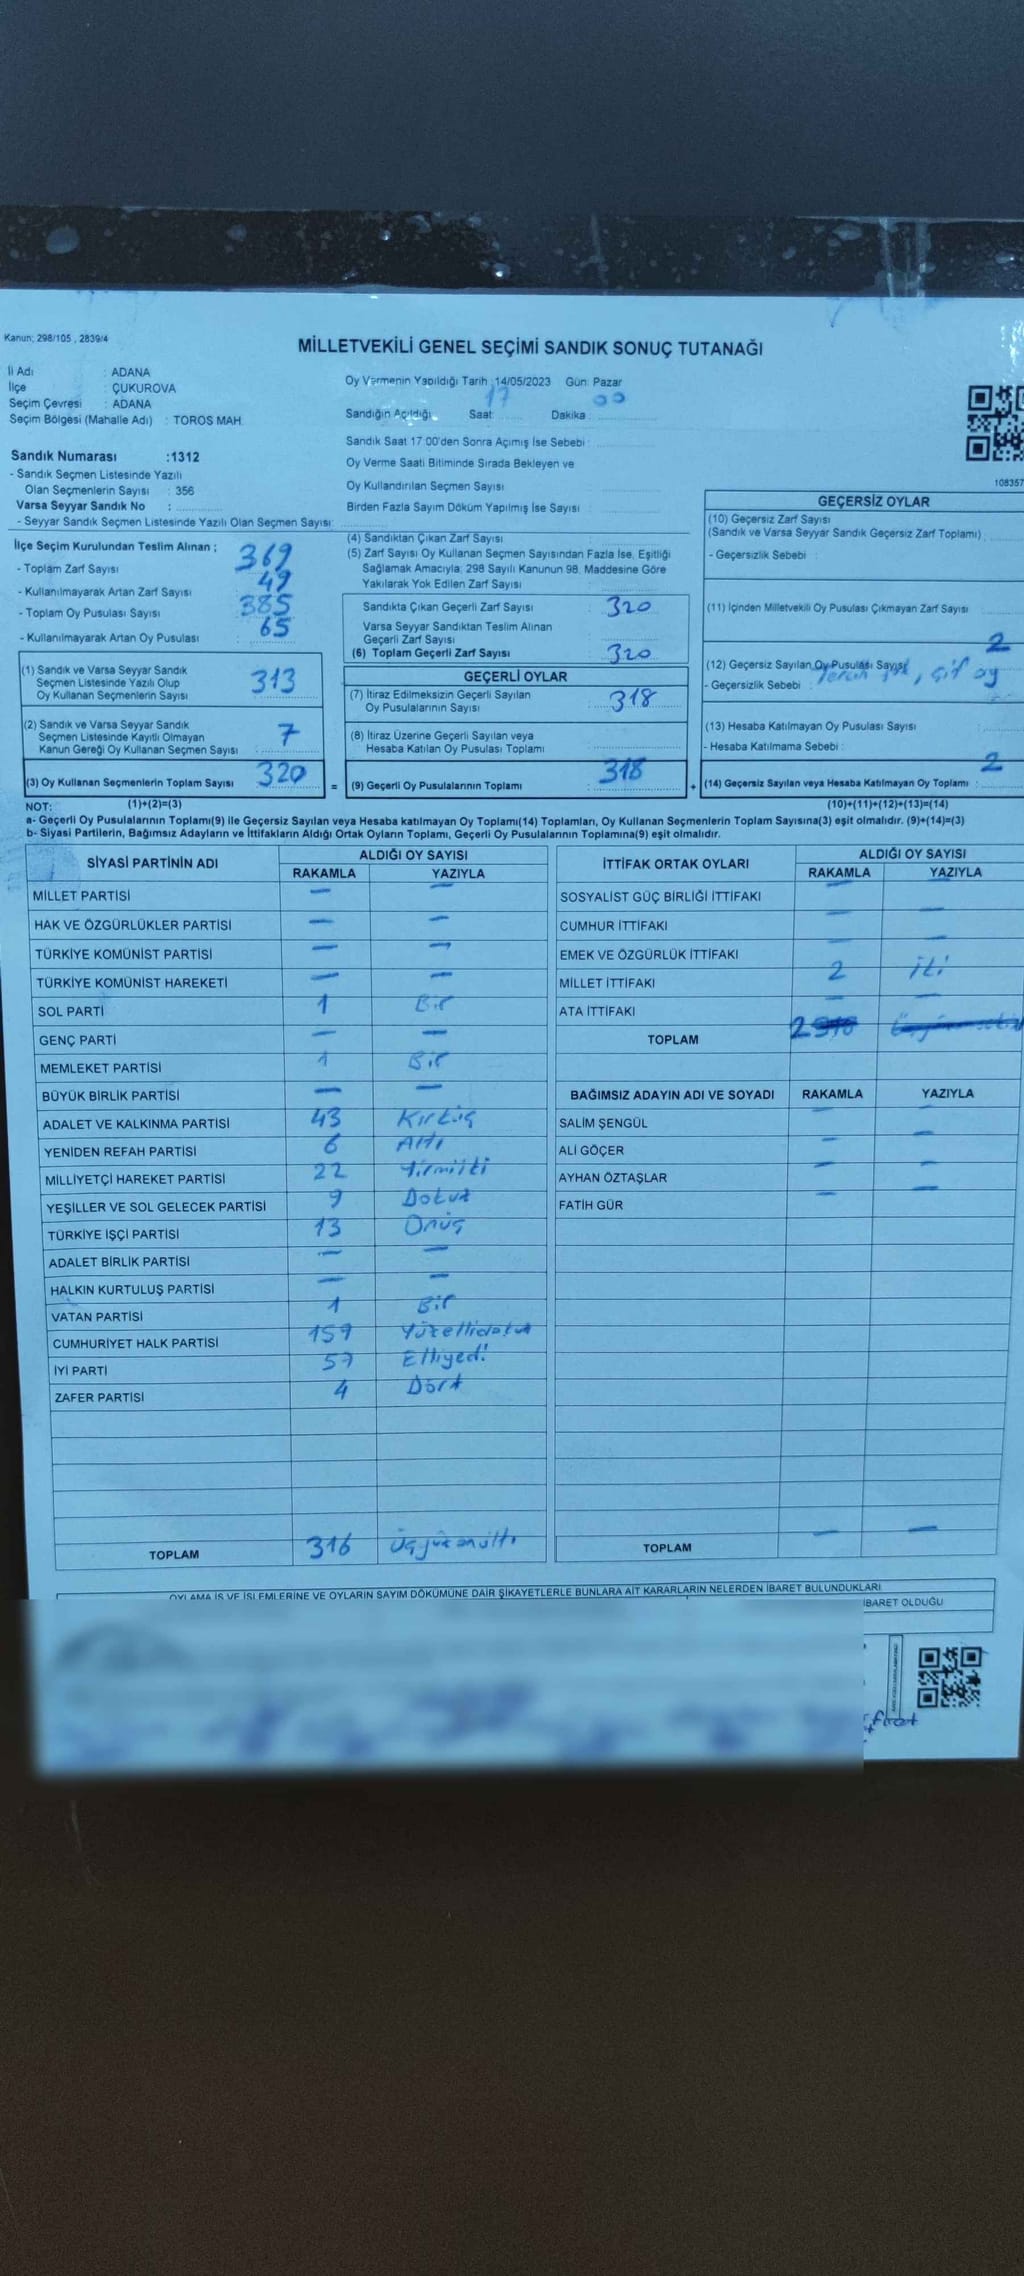 Kanun; 298/105 , 2839/4
MİLLETVEKİLİ GENEL SEÇİMİ SANDIK SONUÇ TUTANAĞI
İl Adı : ADANA
İlçe : ÇUKUROVA
Seçim Çevresi : ADANA
Seçim Bölgesi (Mahalle Adı) : TOROS MAH.
Sandık Numarası :1312
- Sandık Seçmen Listesinde Yazılı
Olan Seçmenlerin Sayısı : 356
Varsa Seyyar Sandık No :
- Seyyar Sandık Seçmen Listesinde Yazılı Olan Seçmen Sayısı:
Oy Vermenin Yapıldığı Tarih :14/05/2023 Gün: Pazar
Sandığın Açıldığı Saat: 17 Dakika : 00
Sandık Saat 17:00'den Sonra Açımış İse Sebebi :
Oy Verme Saati Bitiminde Sırada Bekleyen ve
Oy Kullandırılan Seçmen Sayısı
Birden Fazla Sayım Döküm Yapılmış İse Sayısı :
108357
İlçe Seçim Kurulundan Teslim Alınan ;
- Toplam Zarf Sayısı : 369
- Kullanılmayarak Artan Zarf Sayısı : 49
- Toplam Oy Pusulası Sayısı : 385
- Kullanılmayarak Artan Oy Pusulası : 65
(1) Sandık ve Varsa Seyyar Sandık
Seçmen Listesinde Yazılı Olup
Oy Kullanan Seçmenlerin Sayısı : 313
(2) Sandık ve Varsa Seyyar Sandık
Seçmen Listesinde Kayıtlı Olmayan
Kanun Gereği Oy Kullanan Seçmen Sayısı : 7
(3) Oy Kullanan Seçmenlerin Toplam Sayısı : 320
(4) Sandıktan Çıkan Zarf Sayısı :
(5) Zarf Sayısı Oy Kullanan Seçmen Sayısından Fazla İse, Eşitliği
Sağlamak Amacıyla; 298 Sayılı Kanunun 98. Maddesine Göre
Yakılarak Yok Edilen Zarf Sayısı :
Sandıkta Çıkan Geçerli Zarf Sayısı : 320
Varsa Seyyar Sandıktan Teslim Alınan
Geçerli Zarf Sayısı :
(6) Toplam Geçerli Zarf Sayısı : 320
GEÇERLİ OYLAR
(7) İtiraz Edilmeksizin Geçerli Sayılan
Oy Pusulalarının Sayısı : 318
(8) İtiraz Üzerine Geçerli Sayılan veya
Hesaba Katılan Oy Pusulası Toplamı :
= (9) Geçerli Oy Pusulalarının Toplamı : 318
GEÇERSİZ OYLAR
(10) Geçersiz Zarf Sayısı
(Sandık ve Varsa Seyyar Sandık Geçersiz Zarf Toplamı) :
- Geçersizlik Sebebi :
(11) İçinden Milletvekili Oy Pusulası Çıkmayan Zarf Sayısı :
(12) Geçersiz Sayılan Oy Pusulası Sayısı 2
- Geçersizlik Sebebi : , çift oy
(13) Hesaba Katılmayan Oy Pusulası Sayısı :
- Hesaba Katılmama Sebebi :
+ (14) Geçersiz Sayılan veya Hesaba Katılmayan Oy Toplamı : 2
NOT: (1)+(2)=(3) (10)+(11)+(12)+(13)=(14)
a- Geçerli Oy Pusulalarının Toplamı(9) ile Geçersiz Sayılan veya Hesaba katılmayan Oy Toplamı(14) Toplamları, Oy Kullanan Seçmenlerin Toplam Sayısına(3) eşit olmalıdır. (9)+(14)=(3)
b- Siyasi Partilerin, Bağımsız Adayların ve İttifakların Aldığı Ortak Oyların Toplamı, Geçerli Oy Pusulalarının Toplamına(9) eşit olmalıdır.
SİYASİ PARTİNİN ADI ALDIĞI OY SAYISI
RAKAMLA YAZIYLA
MİLLET PARTİSİ — —
HAK VE ÖZGÜRLÜKLER PARTİSİ — —
TÜRKİYE KOMÜNİST PARTİSİ — —
TÜRKİYE KOMÜNİST HAREKETİ — —
SOL PARTİ 1 Bir
GENÇ PARTİ — —
MEMLEKET PARTİSİ 1 Bir
BÜYÜK BİRLİK PARTİSİ — —
ADALET VE KALKINMA PARTİSİ 43 Kırküç
YENİDEN REFAH PARTİSİ 6 Altı
MİLLİYETÇİ HAREKET PARTİSİ 22 Yirmiiki
YEŞİLLER VE SOL GELECEK PARTİSİ 9 Dokuz
TÜRKİYE İŞÇİ PARTİSİ 13 Onüç
ADALET BİRLİK PARTİSİ — —
HALKIN KURTULUŞ PARTİSİ — —
VATAN PARTİSİ 1 Bir
CUMHURİYET HALK PARTİSİ 159 Yüzellidokuz
İYİ PARTİ 57 Elliyedi
ZAFER PARTİSİ 4 Dört
TOPLAM 316 Üçyüzonaltı
İTTİFAK ORTAK OYLARI ALDIĞI OY SAYISI
RAKAMLA YAZIYLA
SOSYALİST GÜÇ BİRLİĞİ İTTİFAKI — —
CUMHUR İTTİFAKI — —
EMEK VE ÖZGÜRLÜK İTTİFAKI — —
MİLLET İTTİFAKI 2 İki
ATA İTTİFAKI — —
TOPLAM 2
BAĞIMSIZ ADAYIN ADI VE SOYADI RAKAMLA YAZIYLA
SALİM ŞENGÜL — —
ALİ GÖÇER — —
AYHAN ÖZTAŞLAR — —
FATİH GÜR — —
TOPLAM — —
OYLAMA İŞ VE İŞLEMLERİNE VE OYLARIN SAYIM DÖKÜMÜNE DAİR ŞİKAYETLERLE BUNLARA AİT KARARLARIN NELERDEN İBARET BULUNDUKLARI
İBARET OLDUĞU